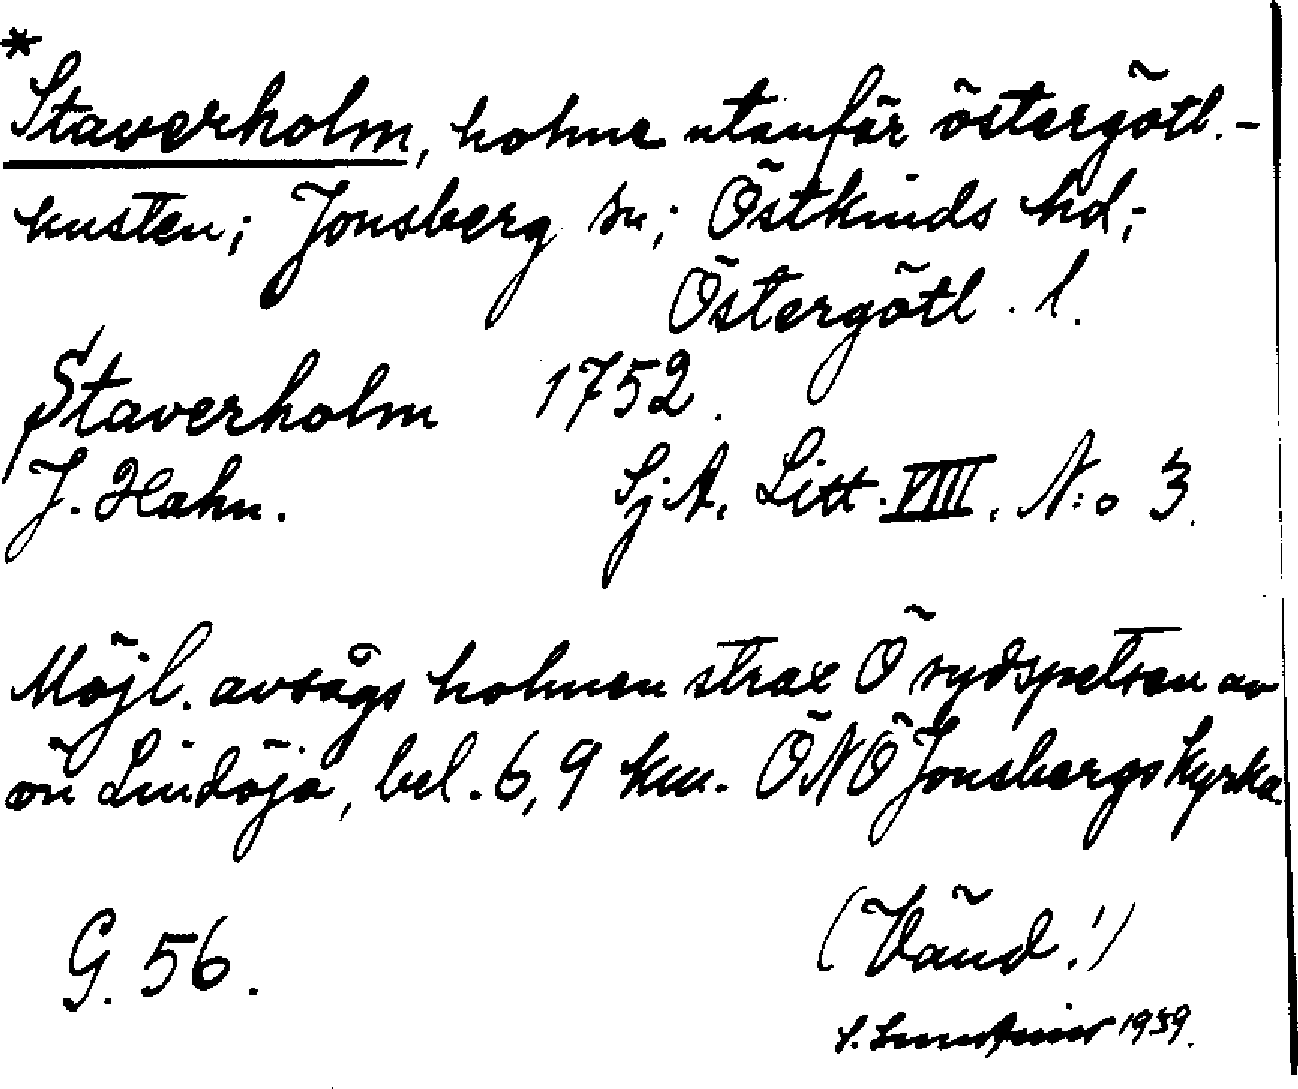 *
Staverholm, holme utanför östergötl.-
kusten; Jonsberg sn; Östkinds hd;
Östergötl. l.
Staverholm 1752.
J. Hahn. Sj.A. Litt. VIII. N:o 3.
Möjl. avsågs holmen strax Ö sydspetsen av
ön Lindöja, bel. 6,9 km. ÖNÖ Jonsbergs kyrka
G. 56. (Vänd!)
1939.